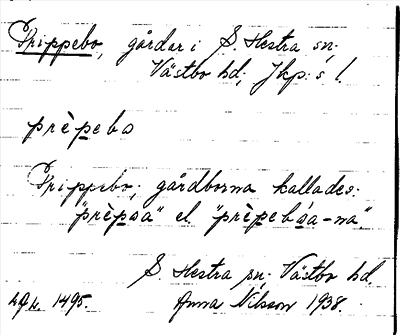 Prippebo, gårdar i S. Hestra sn.
Västbo hd; Jkp:s l.
prèpebo
Prippebo; gårdborna kallades:
"prèpsa" el. "prèpebsa-na".
S. Hestra sn. Västbo hd.
1495. Anna Nilsson 1938.